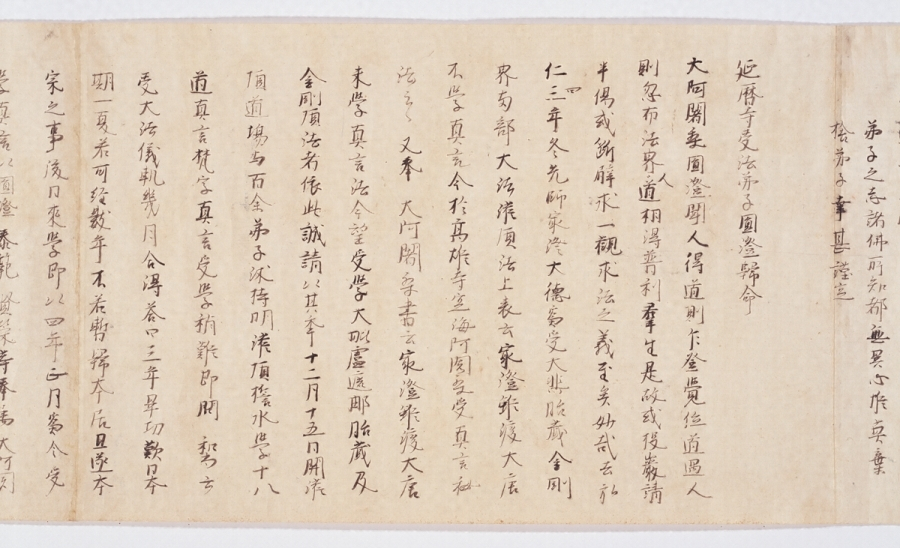 弟子之志諸佛所知都無異心唯莫棄
捨弟子幸甚謹空
延暦寺受法弟子圓澄歸命
大阿闍梨圓澄聞人得道則乍登覺位道遇人
則忽布法界人道相得普利群生是故或投巖請
半偈或斷臂求一觀求法之義至矣妙哉云
仁三四年冬先師最澄大德為受大悲胎藏金剛
界兩部大法灌頂法上表云最澄雖度大唐
不學真言今於高雄寺空海阿闍梨受真言秘
法云々又奉大阿闍梨書云最澄雖度大唐
未學真言法今望受學大毗盧遮那胎藏及
金剛頂法者依此誠請以其年十二月十五日開灌
頂道場与百余弟子沐持明灌頂誓水學十八
道真言梵字真言受學稍難即問和尚云
受大法儀軌幾月令得答曰三年畢功歎曰本
期一夏若可經數年不若暫歸本居且遂本
宗之事後日來學即以四年正月為令受
學真言以圓澄泰範賢榮等奉属大阿闍